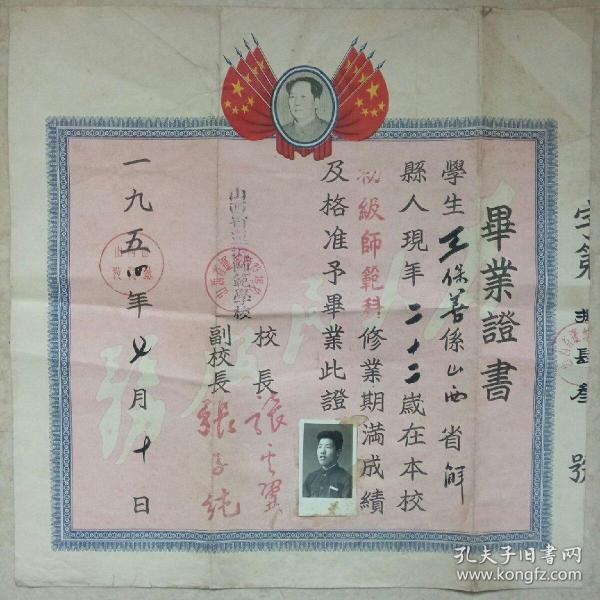 畢業證書
學生王保善係山西省解
縣人現年二十二歲在本校
初級師範科修業期滿成績
及格准予畢業此證
師範學校
校長張
副校長張子純
一九五四年七月十日
字第
叁號
孔夫子旧书网
www.kongfz.com